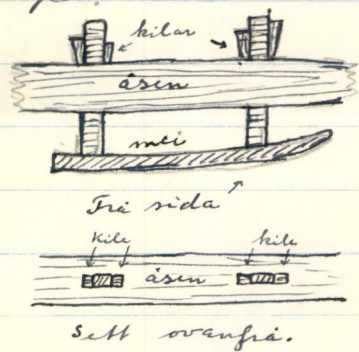 kilar
åsen
mei
Frå sida
kile kile
åsen
Sett ovanfrå.